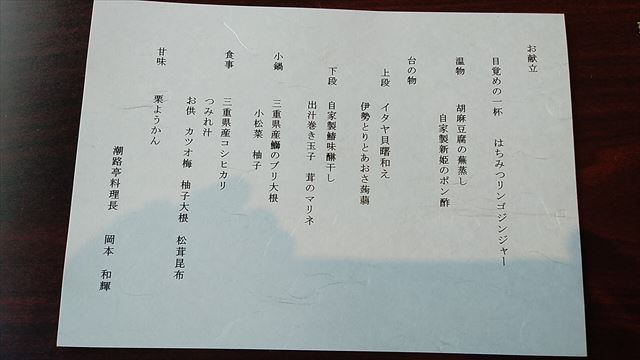 お献立
目覚めの一杯　はちみつリンゴジンジャー
温物　胡麻豆腐の蕪蒸し
自家製新姫のポン酢
台の物
上段　イタヤ貝曙和え
伊勢とりとあおさ蒟蒻
下段　自家製鰆味醂干し
出汁巻き玉子　茸のマリネ
小鍋　三重県産鰤のブリ大根
小松菜　柚子
食事　三重県産コシヒカリ
つみれ汁
お供　カツオ梅　柚子大根　松茸昆布
甘味　栗ようかん
潮路亭料理長　岡本　和輝